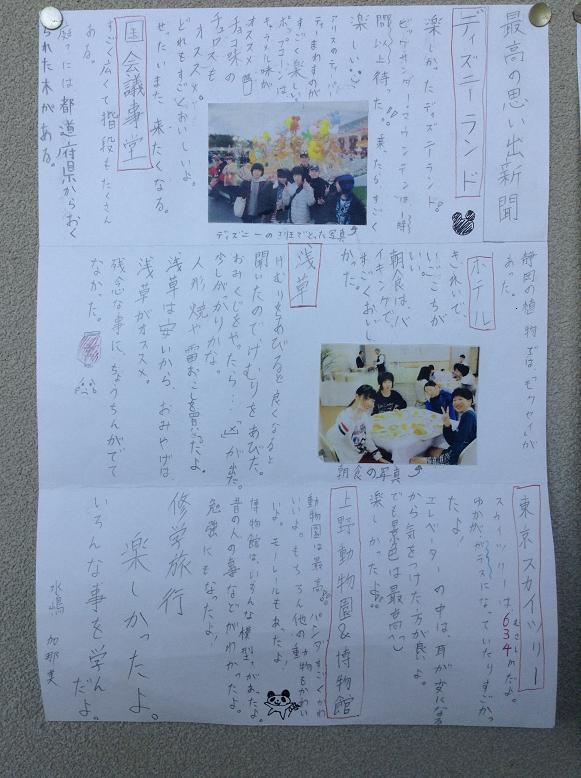 最高の思い出新聞
ディズニーランド
楽しかったディズニーランド。
ビッグサンダーマウンテンは一時
間以上待った。乗たらすごく
楽しい
アリスのティーパー
ティーまわすのが
すごく楽しい。
ポップコーンは
キャラメル味が
オススメ
チョコ味の
チュロスも
オススメ。
どれもすごくおいしいよ。
ぜったいまた来たくなる。
ディズニーの3班でとった写真
国会議事堂
すごく広くて階段もたくさん
ある。
庭っには都道府県からおく
られた木がある。
静岡の植物では、モクセイが
あった。
ホテル
きれいで、
いごこちが
いい
朝食は、バ
イキングで、
すごくおいし
かった。
朝食の写真
浅草
けむりをあびると良くなると
聞いたのでけむりをあびた。
おみくじをやったら…「凶」が出た。
少しがっかりかな。
人形焼や雷おこしを買ったよ。
浅草は安いから、おみやげは、
浅草がオススメ。
残念な事に、ちょうちんがでて
なかった。
東京スカイツリー
スカイツリーは634mだよ。
むさし
ゆかが、ガラスになっていたりすごかっ
たよ!
エレベーターの中は、耳が変になる
から気をつけた方が良いよ。
でも景色は最高へ
楽しかったよ
上野動物園&博物館
動物園は最高。パンダすごくかわ
いいよ。もちろん他の動物もかわい
いよ。モノレールもあったよ!
博物館は、いろんな模型があったよ。
昔の人の暮などがわかったよ。
勉強にもなったよ!
修学旅行
楽しかったよ。
いろんな事を学ん
だよ。
水嶋 加那美